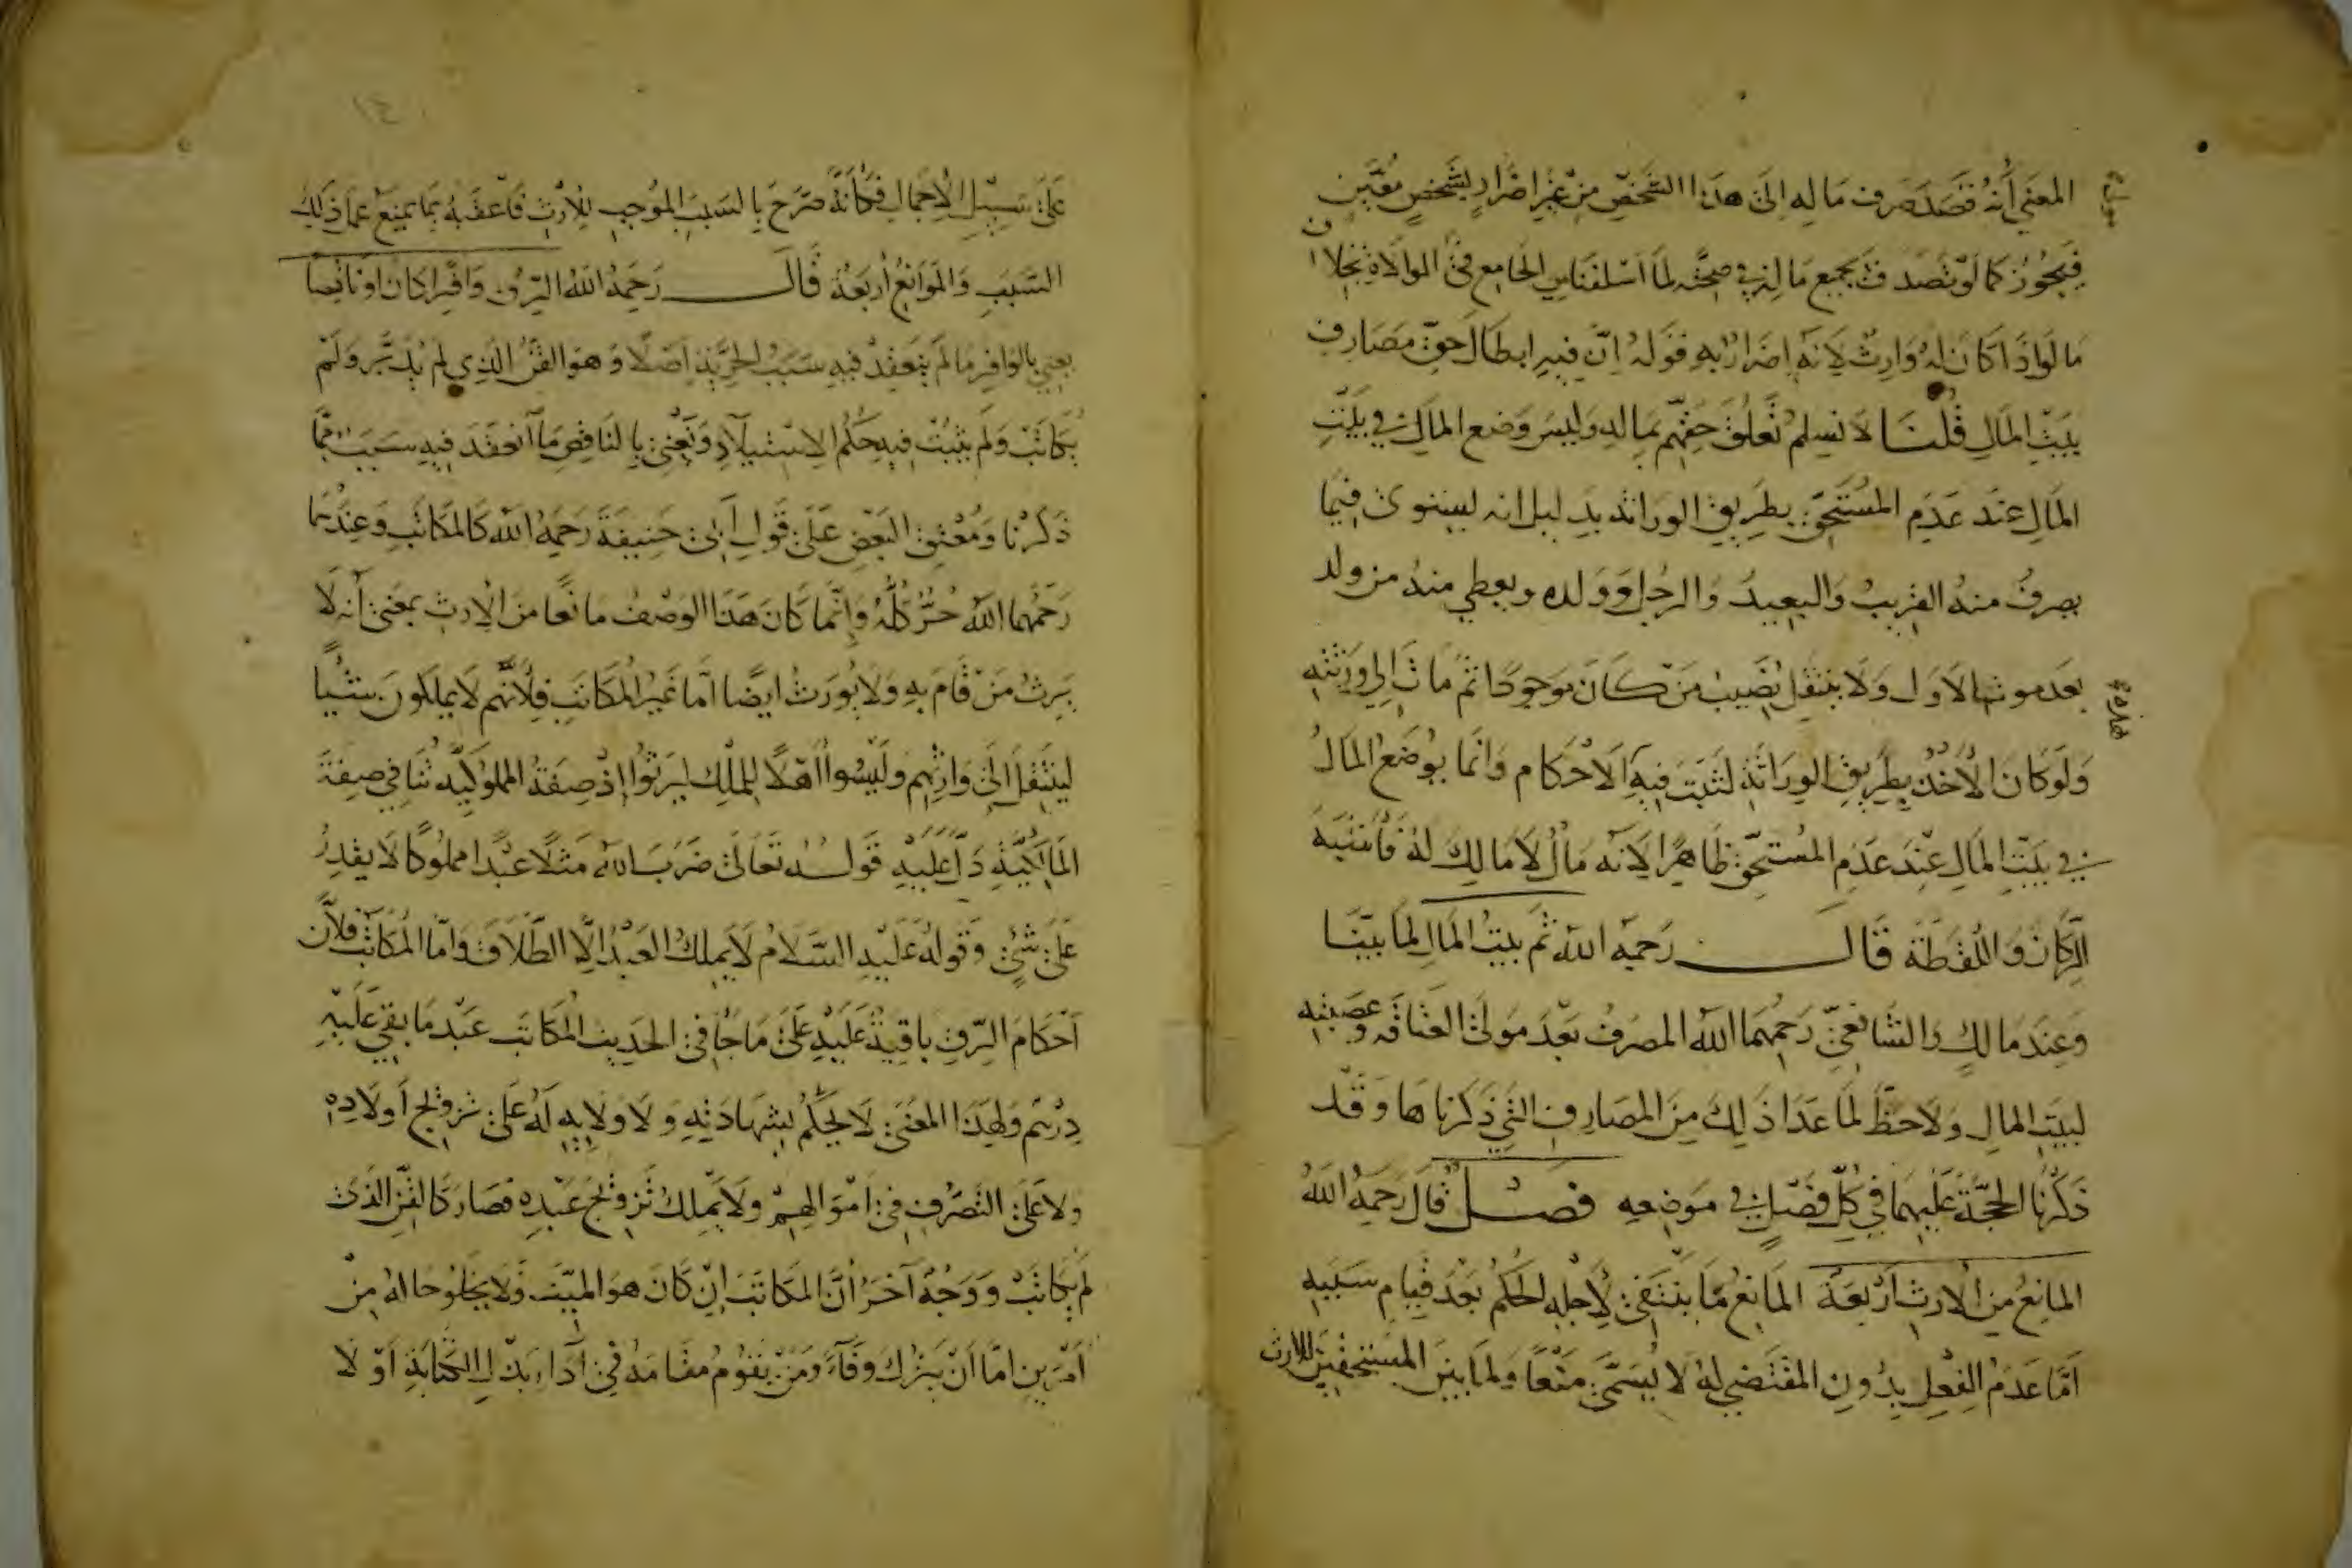 المعنى أنه قصد صرف ماله الى هذا الشخص من غير اضرار بشخص معين
فيجوز كما لو تصدق بجميع ماله في صحته لما اسلفنا من الجامع في الموالاة بخلاف
ما لو اذا كان له وارث لانه اضرار به قوله ان فيه ابطال حق مصارف
بيت المال قلنا لا نسلم تعلق حقهم بماله وليس وضع المال في بيت
المال عند عدم المستحق بطريق الوراثة بدليل انه ليستوى فيما
يصرف منه القريب والبعيد والرجل وولده ويعطي منه من ولد
بعد موت الاول ولا ينتقل نصيب من كان موجودا ثم مات الي ورثته
ولو كان الأخذ بطريق الوراثة لثبت فيه الاحكام وانما يوضع المال
في بيت المال عند عدم المستحق ظاهرا لانه مال لا مالك له فأشبه
الركاز واللقطة قال رحمه الله ثم بيت المال لما بينا
وعند مالك والشافعي رحمهما الله المصرف بعد مولى العتاقة وعصبته
لبيت المال ولا حظ لما عدا ذلك من المصارف التي ذكرناها وقد
ذكرنا الحجة عليهما في كل فصل في موضعه فصل قال رحمه الله
المانع من الارث اربعة المانع ما ينتفي لأجله الحكم بعد قيام سببه
اما عدم الفعل بدون المقتضي له لا يسمى منعا ولما بين المستحقين للارث
١٤
على سبيل الاجمال فكأنه صرح بالسبب الموجب للارث فأعقبه بما يمنع عما ذلك
السبب والموانع أربعة قال رحمه الله الرق وافرا كان او ناقصا
يعني بالوافر ما لم ينعقد فيه سبب الحرية اصلا وهو القن الذي لم يدبر ولم
يكاتب ولم يثبت فيه حكم الاستيلاد ونعني بالناقص ما انعقد فيه سبب مما
ذكرنا ومعتق البعض على قول ابى حنيفة رحمه الله كالمكاتب وعندهما
رحمهما الله حر كله وانما كان هذا الوصف مانعا من الارث بمعنى أنه لا
يرث من قام به ولا يورث ايضا اما غير المكاتب فلأنهم لا يملكون شيئا
لينتقل الى وارثهم وليسوا أهلا للملك ليرثوا إذ صفة المملوكية تنافي صفة
المالكية دل عليه قوله تعالى ضرب الله مثلا عبدا مملوكا لا يقدر
على شئ وقوله عليه السلام لا يملك العبد الا الطلاق واما المكاتب فلأن
احكام الرق باقية عليه على ما جا في الحديث المكاتب عبد ما بقي عليه
درهم ولهذا المعنى لا يحكم بشهادته ولا ولاية له على تزويج أولاده
ولا على التصرف في اموالهم ولا يملك تزويج عبده فصار كالقن الذى
لم يكاتب ووجه آخر أن المكاتب ان كان هو الميت فلا يخلو حاله من
أمرين اما أن يترك وفآء ومن يقوم مقامه في آداء بدل الكتابة او لا